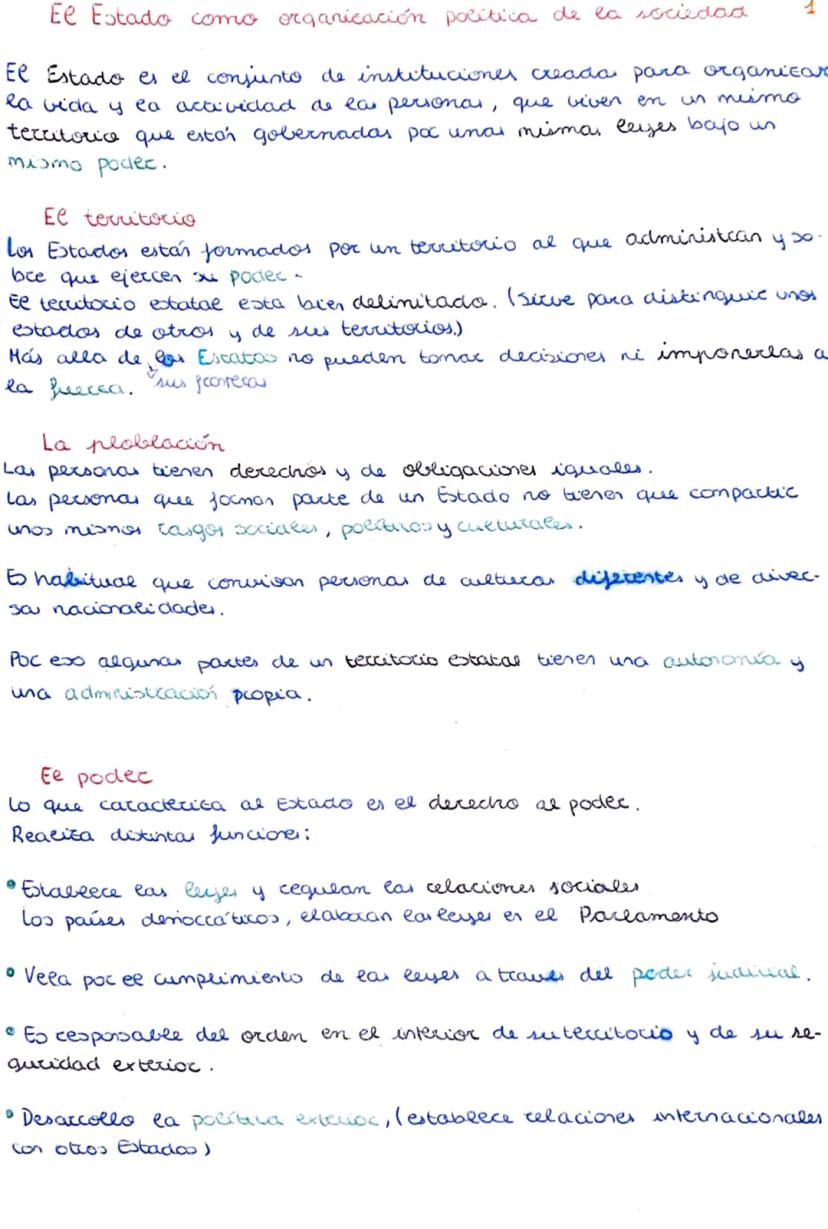 El Estado como organización política de la sociedad 1
El Estado es el conjunto de instituciones creadas para organizar
la vida y la actividad de las personas, que viven en un mismo
territorio que están gobernadas por unas mismas leyes bajo un
mismo poder.
El territorio
Los Estados están formados por un territorio al que administran y so-
bre que ejercen su poder.
El territorio estatal esta bien delimitado. (Sirve para distinguir unos
estados de otros y de sus territorios.)
Más alla de los Estatas no pueden tomar decisiones ni imponerlas a
la fuerza. sus fronteras
La ploblación
Las personas tienen derechos y de obligaciones iguales.
Las personas que forman parte de un Estado no tienen que compartir
unos mismos rasgos sociales, políticos y culturales.
Es habitual que convivan personas de culturas diferentes y de diver-
sas nacionalidades.
Por eso algunas partes de un territorio estatal tienen una autonomía y
una administración propia.
El poder
Lo que caracteriza al Estado es el derecho al poder.
Realiza distintas funciones:
• Establece las leyes y regulan las relaciones sociales
Los países democráticos, elaboran las leyes en el Parlamento
• Vela por el cumplimiento de las leyes a traves del poder judicial.
• Es responsable del orden en el interior de su territorio y de su se-
guridad exterior.
• Desarrollo la política exterior, (establece relaciones internacionales
con otros Estados)